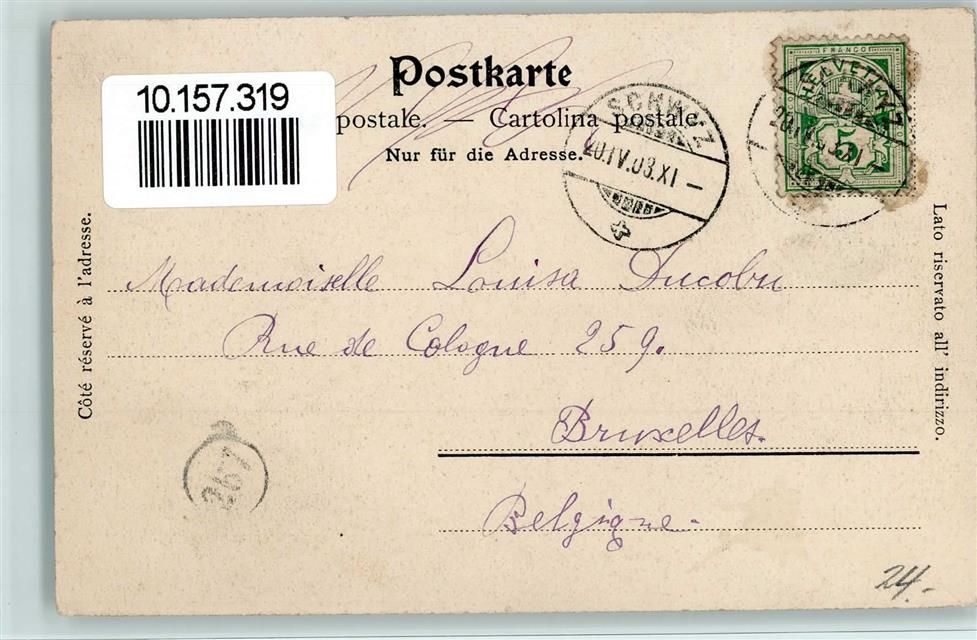 Postkarte
10.157.319
postale. — Cartolina postale.
Nur für die Adresse.
SCHWYZ
20.IV.03.XI –
FRANCO
HELVETIA
5
SCHWYZ
20.IV.03.XI
Côté réservé à l'adresse.
Lato riservato all' indirizzo.
Mademoiselle Louisa Ducobu
Rue de Cologne 259.
Bruxelles.
Belgique.
267
24.-